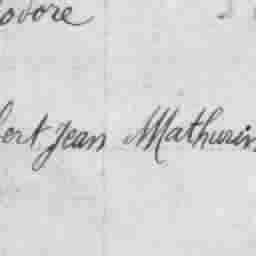 odore
bert Jean Mathurin